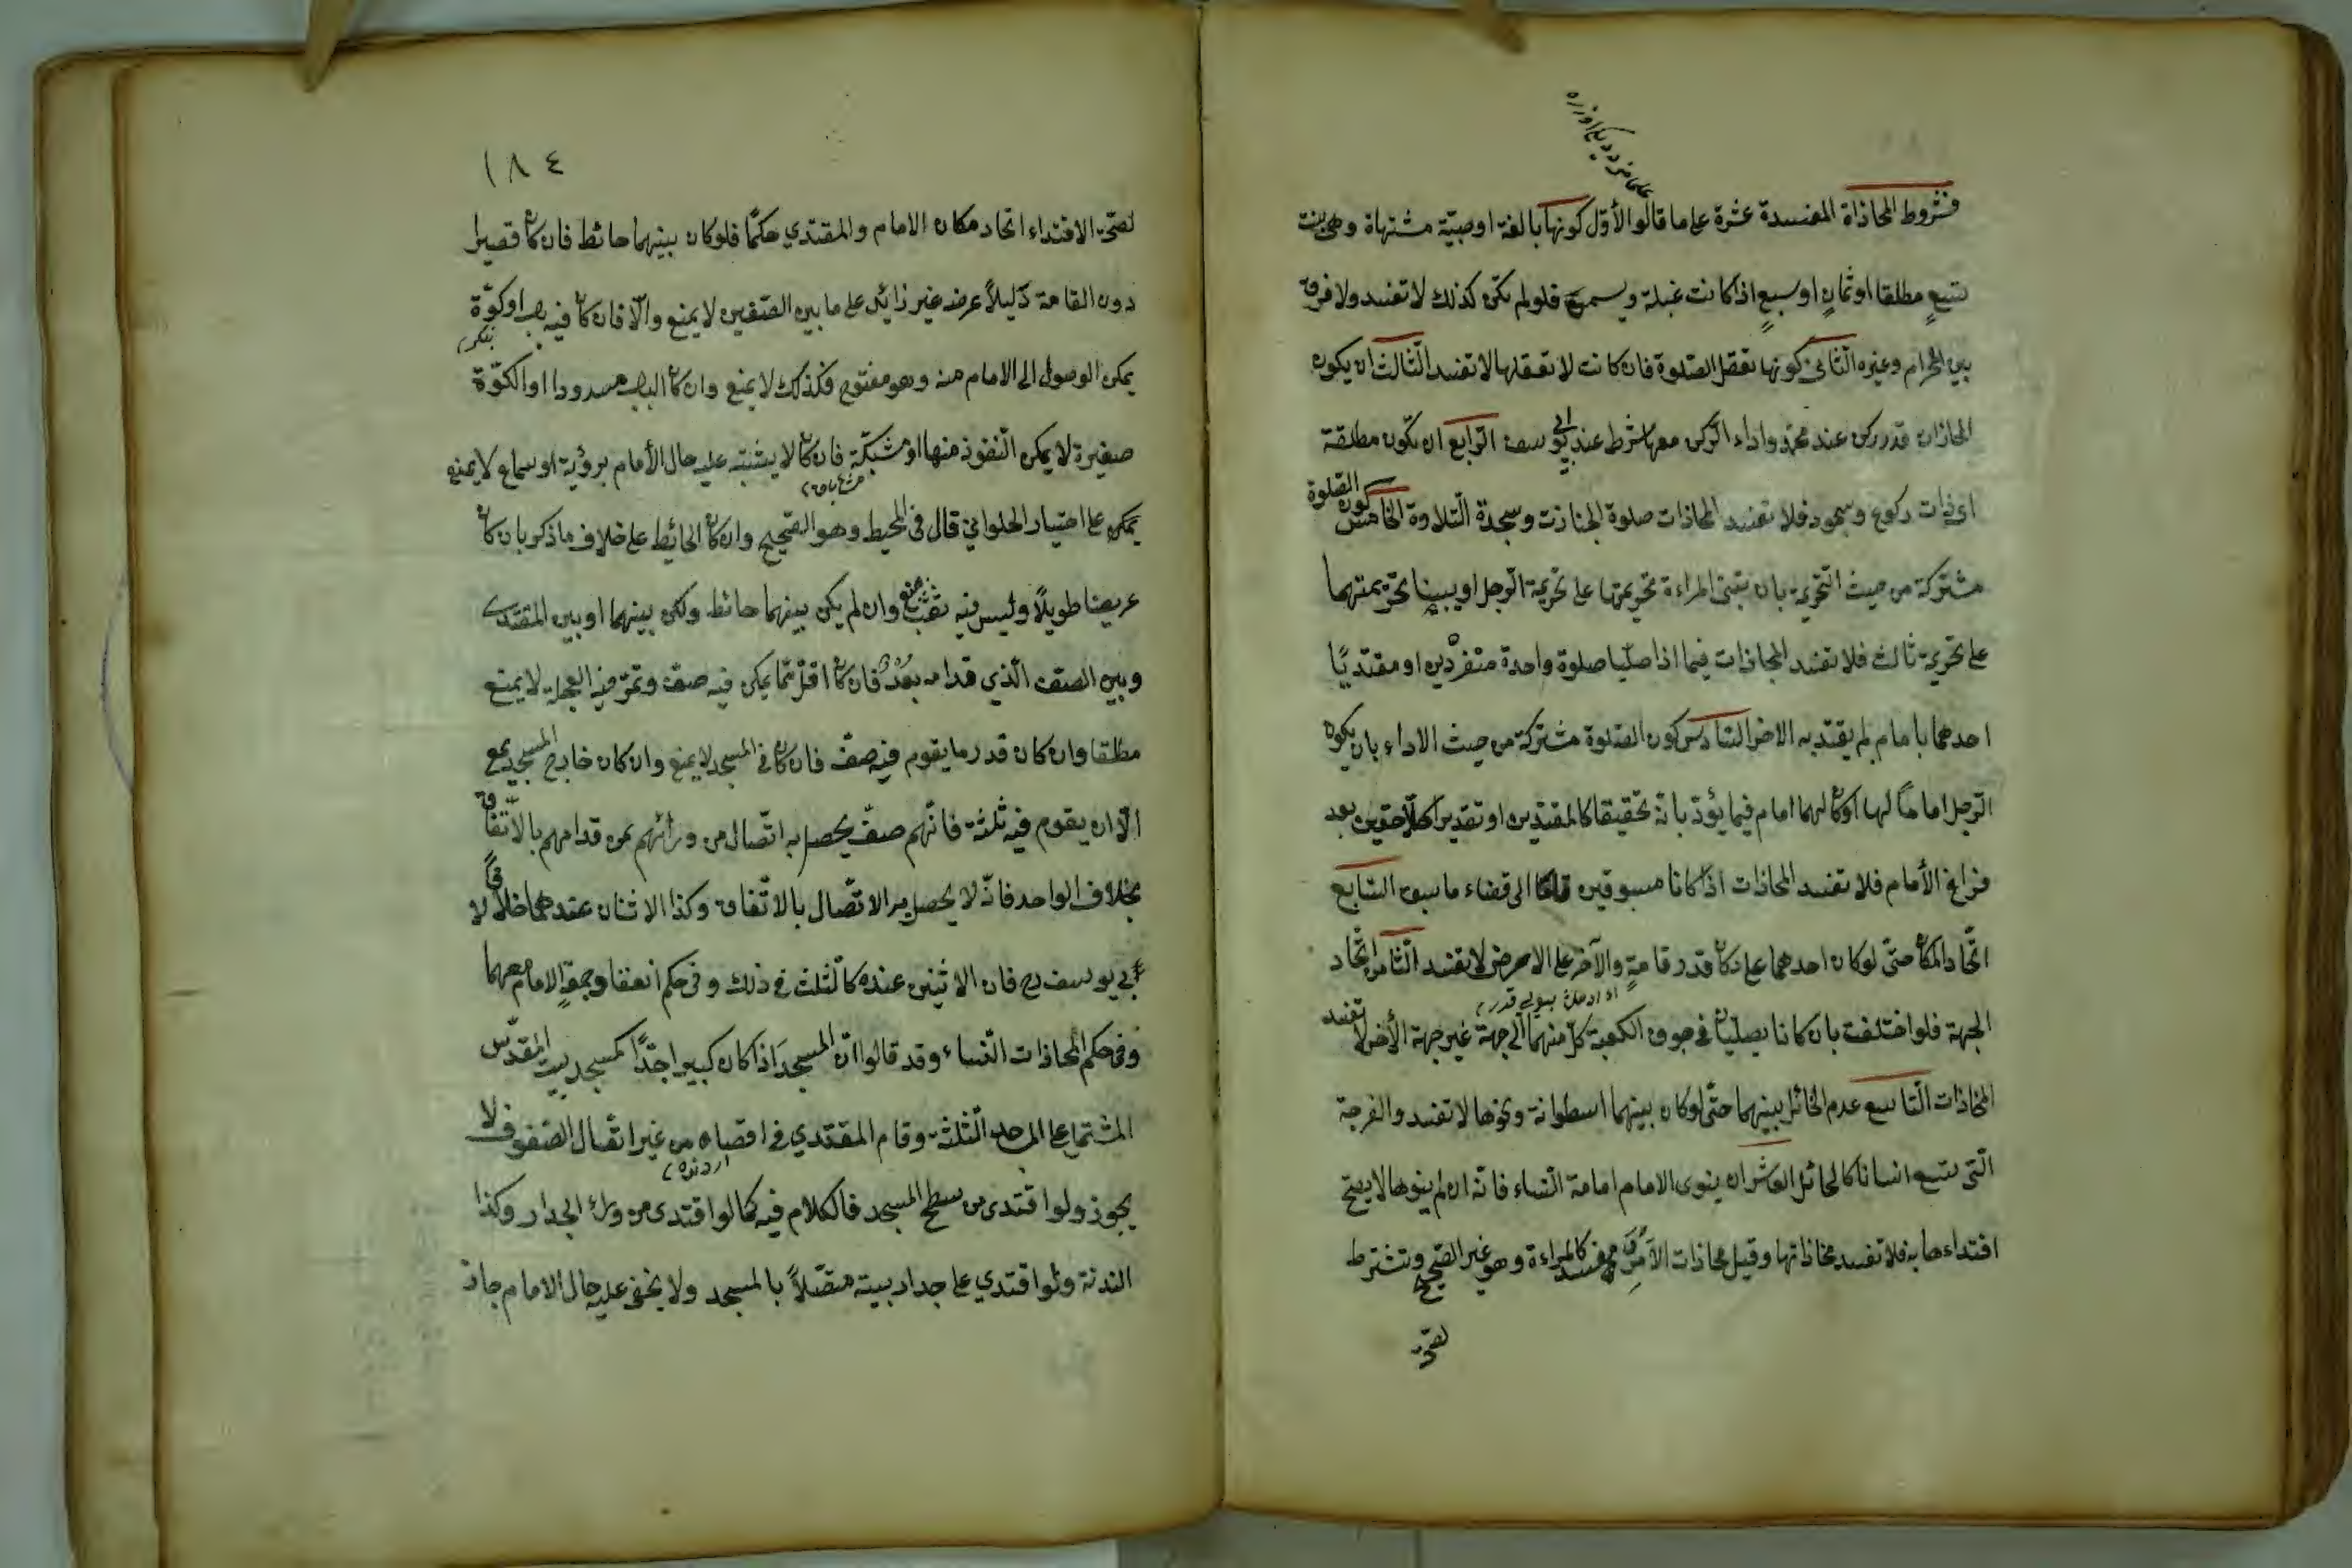 فشروط المحاذاة المفسدة عشرة على ما قالوا الأوّل كونها بالغة او صبيّة مشتهاة وهى بنت
تسع مطلقا او ثمان او سبع اذا كانت عبلة فلو لم تكن كذلك لا تفسد ولا فرق
بين المحرام وغيره الثانى كونها تعقل الصلوة فان كانت لا تعقلها لا تفسد الثالث ان يكون
المحاذات قدر ركن عند محمد واداء الركن معها شرط عند ابى يوسف الرابع ان تكون مطلقة
اى ذات ركوع وسجود فلا تفسد المحاذات صلوة الجنازت وسجدة التلاوة الخامس كون الصلوة
مشتركة من حيث التحريمة بان تبنى المراءة تحريمتها على تحريمة الرجل او يبينا تحريمتهما
على تحريمة ثالث فلا تفسد المحاذات فيما اذا صليا صلوة واحدة منفردين او مقتديًا
احدهما بامام لم يقتد به الاخر السادس كون الصلوة مشتركة من حيث الاداء بان يكون
الرجل امامًا لها او كان لهما امام فيما يؤديانه تحقيقا كالمقتدين او تقديرا كاللاحقين بعد
فراغ الأمام فلا تفسد المحاذات اذا كانا مسبوقين قاما الى قضاء ما سبق السابع
اتحاد المكان حتى لو كان احدهما على دكان قدر قامة والآخر على الارض لا تفسد الثامن اتحاد
الجهة فلو اختلفت بان كانا يصليان فى جوف الكعبة كل منهما الى جهة غير جهة الأخر لا تفسد
المحاذات التاسع عدم الحائل بينهما حتى لو كان بينهما اسطوانة ونحوها لا تفسد والفرجة
التى تسع انسانا كالحائل العاشر ان ينوى الامام امامة النساء فانه ان لم ينوها لا يصح
اقتداءها به فلا تفسد محاذاتها وقيل محاذات الأمرد مفسد كالمراءة وهو غير الصحيح وتشترط
لصحة
١٨٤
لصحّة الاقتداء اتحاد مكان الامام والمقتدي حكمًا فلو كان بينهما حائط فان كان قصيرا
دون القامة ذليلاً عرضه غير زائد على ما بين الصفين لا يمنع والّا فان كان فيه باب او كوّة
يمكن الوصول الى الامام منه وهو مفتوح فكذلك لا يمنع وان كان الباب مسدودا او الكوّة
صغيرة لا يمكن النفوذ منها او مشبّكة فان كان لا يشتبه عليه حال الأمام برؤية او سماع لا يمنع
على اختيار الحلواني قال فى المحيط وهو الصحيح وان كان الحائط على خلاف ما ذكر بان كان
عريضا طويلاً وليس فيه ثقب منع وان لم يكن بينهما حائط ولكن بينهما او بين المقتدى
وبين الصف الّذي قدامه بعد فان كان اقل مما يمكن فيه صف وتمر فيه العجلة لا يمنع
مطلقا وان كان قدر ما يقوم فيه صفّ فان كان فى المسجد لا يمنع وان كان خارج المسجد يمنع
الّا ان يقوم فيه ثلثة فانّهم صفّ يحصل به اتّصال من ورائهم بمن قدامهم بالاتّفاق
بخلاف الواحد فانّه لا يحصل به الاتّصال بالاتّفاق وكذا الاثنان عندهما خلافًا لا
بي يوسف رح فان الاثنين عنده كالثلث فى ذلك وفى حكم انعقاد جمعة الامام معهما
وفى حكم المحاذات النّساء وقد قالوا انّ المسجد اذا كان كبيرا جدًّا كمسجد بيت المقدّس
المشتمل على المساجد الثلثة وقام المقتدي فى اقصاه من غير اتصال الصفوف لا
يجوز ولو اقتدى من سطح المسجد فالكلام فيه كما لو اقتدى من وراء الجدار وكذا
ولو اقتدي على جدار بيته متصلاً بالمسجد ولا يخفى عليه حال الامام جاز